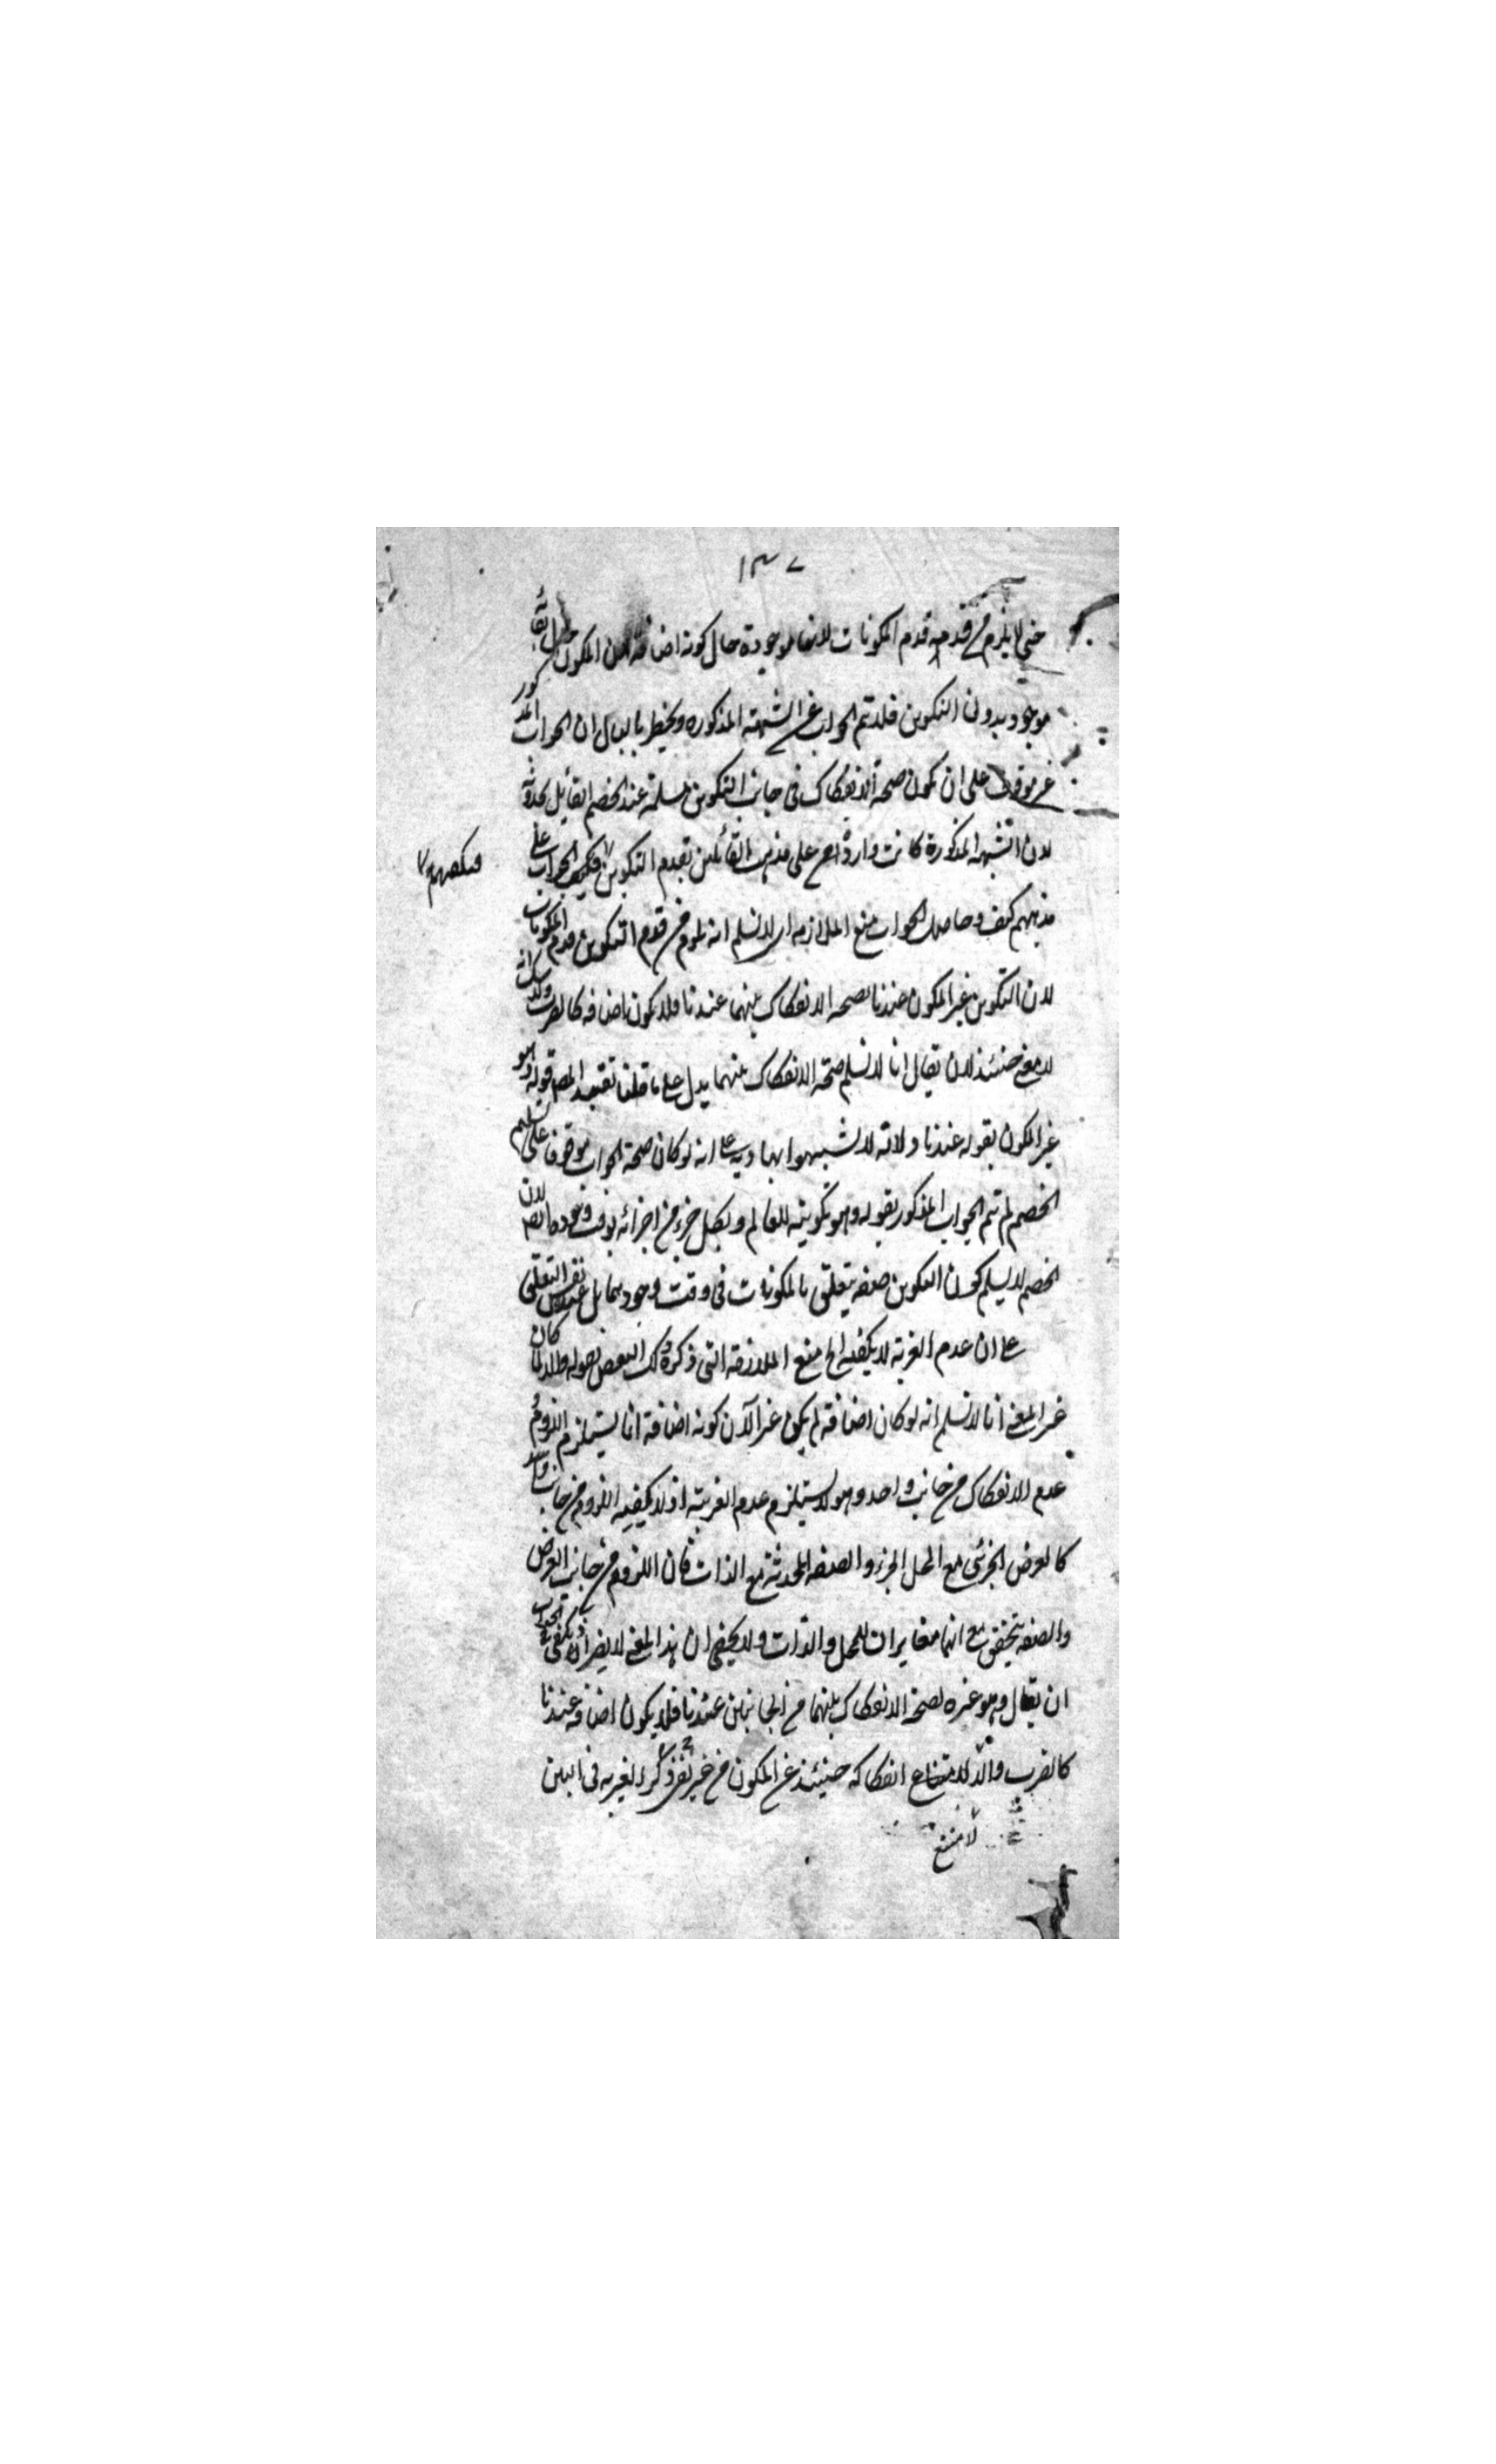 ١٣٧
حتى لا يلزم من قدمه قدم المكونات لانها موجودة حال كونه اضافة لان المكون حال بقائه
موجود بدون التكوين فلا يتم الجواب عن الشبهة المذكوره ويخطر بالبال ان الجواب المذكور
غير موقوف على ان يكون صحة الانفكاك فى جانب التكوين مسلمة عند الخصم القائل بحدوثه
لان الشبهة المذكورة كانت واردة على مذهب القائلين بقدم التكوين فيكفيهم الجواب على
مذهبهم كيف وحاصل الجواب منع الملازمه اى لا نسلم انه يلزم من قدم التكوين قدم المكونات
لان التكوين غير المكون عندنا لصحه الانفكاك بينهما عندنا فلا يكون اضافه كالضرب ولا شك انه
لا معنى حينئذ لان يقال انا لا نسلم صحة الانفكاك بينهما يدل على ما قلنا تقييد المصـ قوله وهو
غير المكون بقوله عندنا ودلالة على انه لو كان صحة الجواب موقوفا على تسليم
الخصم لم يتم الجواب المذكور بقوله وهو تكوينه للعالم ولكل جزء من اجزائه لوقت وجوده ايضا لان
الخصم لا يسلم كون التكوين صفه يتعلق بالمكونات فى وقت وجودها بل نفس التعلق
على ان عدم الغيرية لا يكفيه الخ منع الملازمة التى ذكره ذلك البعض بقوله ولما كان
غير المعنى انا لا نسلم انه لو كان اضافة لم يكن غيرا لان كونه اضافة انما يستلزم اللزوم
عدم الانفكاك من جانب واحد وهو لا يستلزم عدم الغيرية اذ لا يكفيه اللزوم من جانب واحد
كالعرض الجزئى مع المحل الجزء والصفة المحدثة مع الذات فان اللزوم من جانب العرض
والصفه يتحقق مع انهما مغايران للمحل والذات ولا يخفى ان هذا المعنى لا يضر اذ يكفى فى الجواب
ان يقال وهو غيره لصحة الانفكاك بينهما من الجانبين عندنا فلا يكون اضافه عندنا
كالضرب والا لامتناع انفكاكه حينئذ عن المكون من غير تعرض لذكر الغيريه فى البين
لامتنع